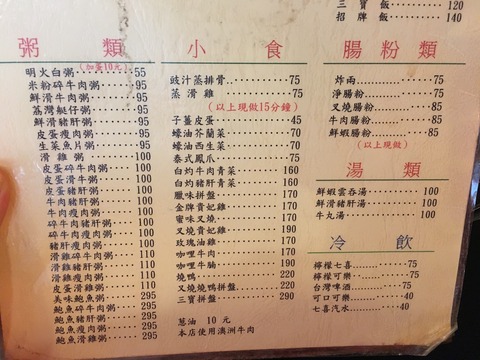 三寶飯 120
招牌飯 140
粥類
明火白粥(加蛋10元) 55
米粉碎牛肉粥 95
鮮滑牛肉粥 95
荔灣艇仔粥 95
鮮滑豬肝粥 95
皮蛋瘦肉粥 95
生菜魚片粥 95
滑雞粥 100
皮蛋碎牛肉粥 100
皮蛋滑牛粥 100
皮蛋豬肝粥 100
牛肉豬肝粥 100
牛肉瘦肉粥 100
碎牛肉豬肝粥 100
碎牛肉瘦肉粥 100
豬肝瘦肉粥 100
滑雞碎牛肉粥 110
滑雞豬肝粥 110
滑雞瘦肉粥 110
皮蛋滑雞粥 110
美味鮑魚粥 295
鮑魚碎牛粥 295
鮑魚豬肝粥 295
鮑魚瘦肉粥 295
鮑魚滑雞粥 295
小食
豉汁蒸排骨 75
蒸滑雞 75
(以上現做15分鐘)
子薑皮蛋 45
蠔油芥蘭菜 70
蠔油西生菜 70
泰式鳳爪 75
白灼牛肉青菜 160
白灼豬肝青菜 160
臘味拼盤 170
金牌貴妃雞 170
蜜味叉燒 170
叉燒貴妃雞 190
玫瑰油雞 170
咖哩牛肉 170
咖哩牛腩 190
燒鴨 220
叉燒燒鴨拼盤 220
三寶拼盤 290
蔥油 10元
本店使用澳洲牛肉
腸粉類
炸兩 75
淨腸粉 75
叉燒腸粉 85
牛肉腸粉 85
鮮蝦腸粉 85
(以上現做)
湯類
鮮蝦雲吞湯 100
鮮滑豬肝湯 100
牛丸湯 100
冷飲
檸檬七喜 75
檸檬可樂 75
台灣啤酒 75
可口可樂 40
七喜汽水 40